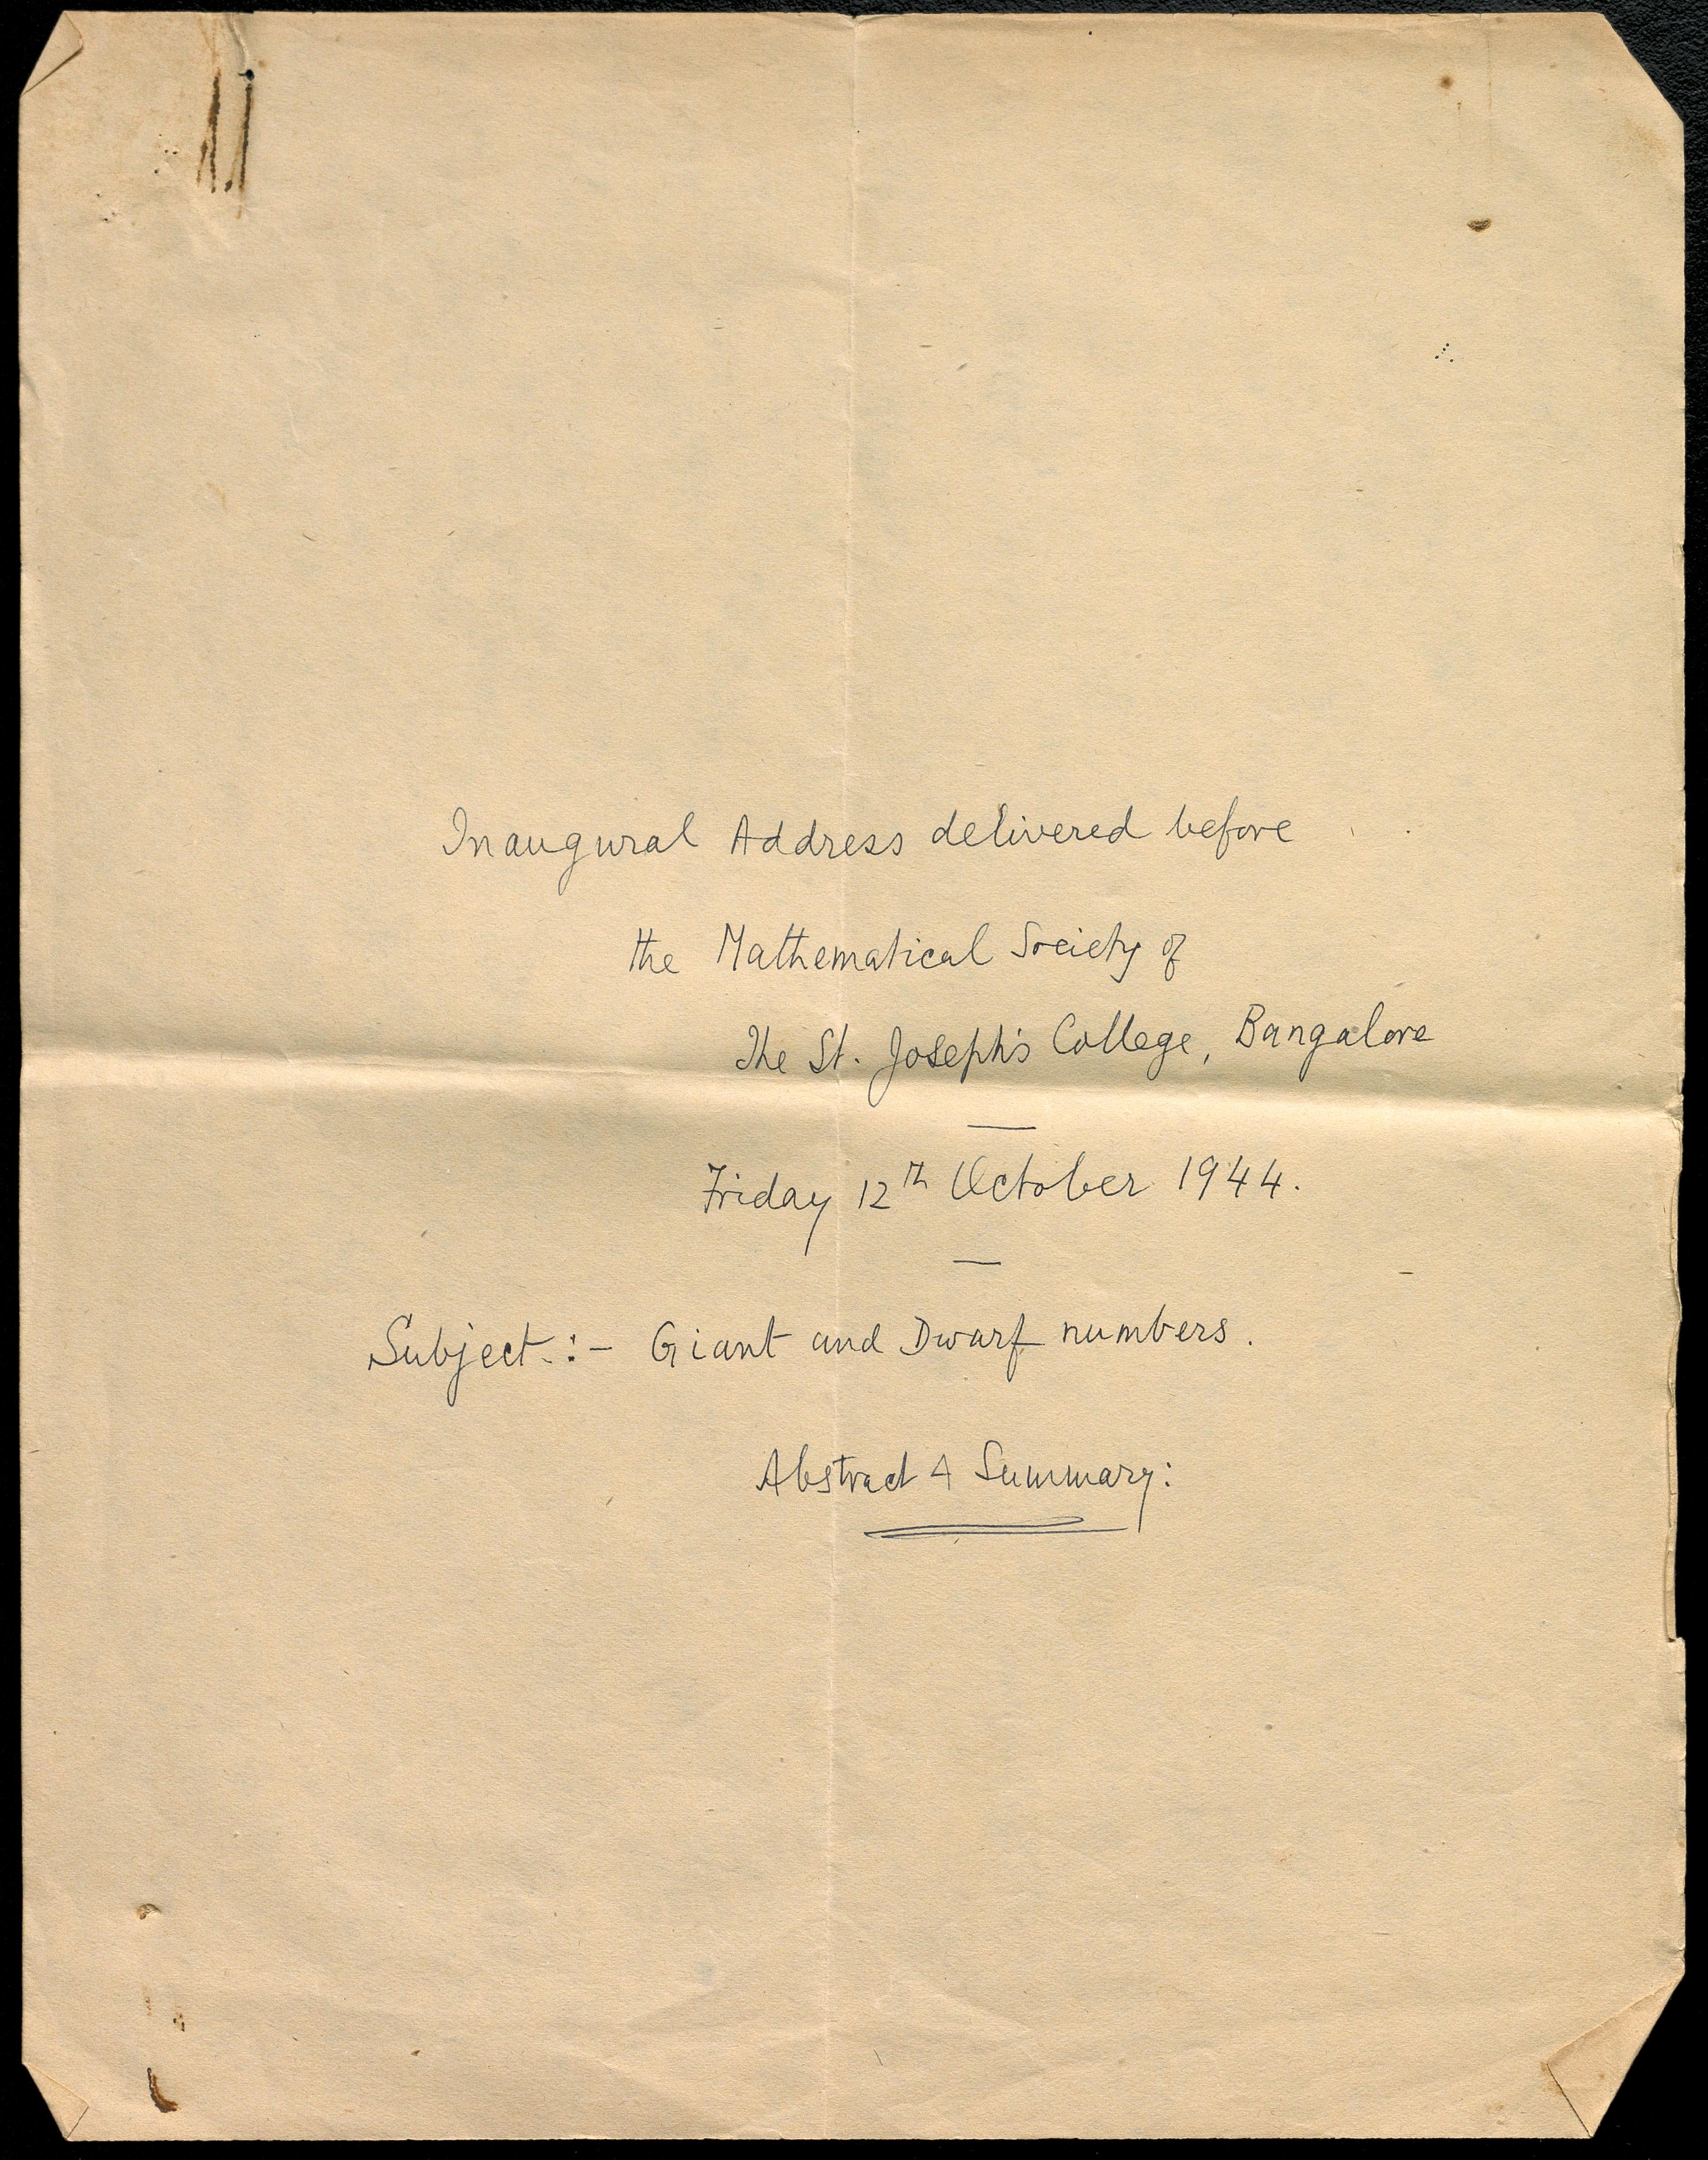 Inaugural Address delivered before
the Mathematical Society of
The St. Joseph's College, Bangalore
Friday 12th October 1944.
Subject :- Giant and Dwarf numbers.
Abstract & Summary: